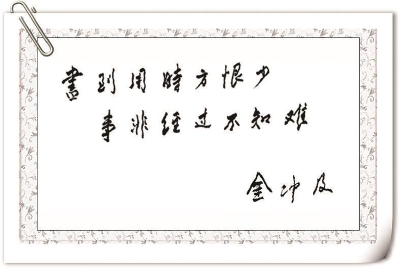 書到用時方恨少
事非经过不知难
金冲及